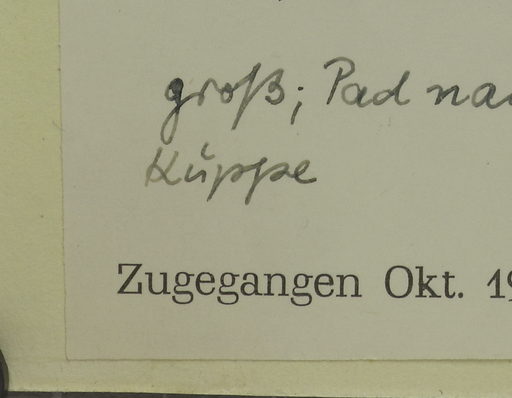 groß; Pad na
Kuppe
Zugegangen Okt. 19